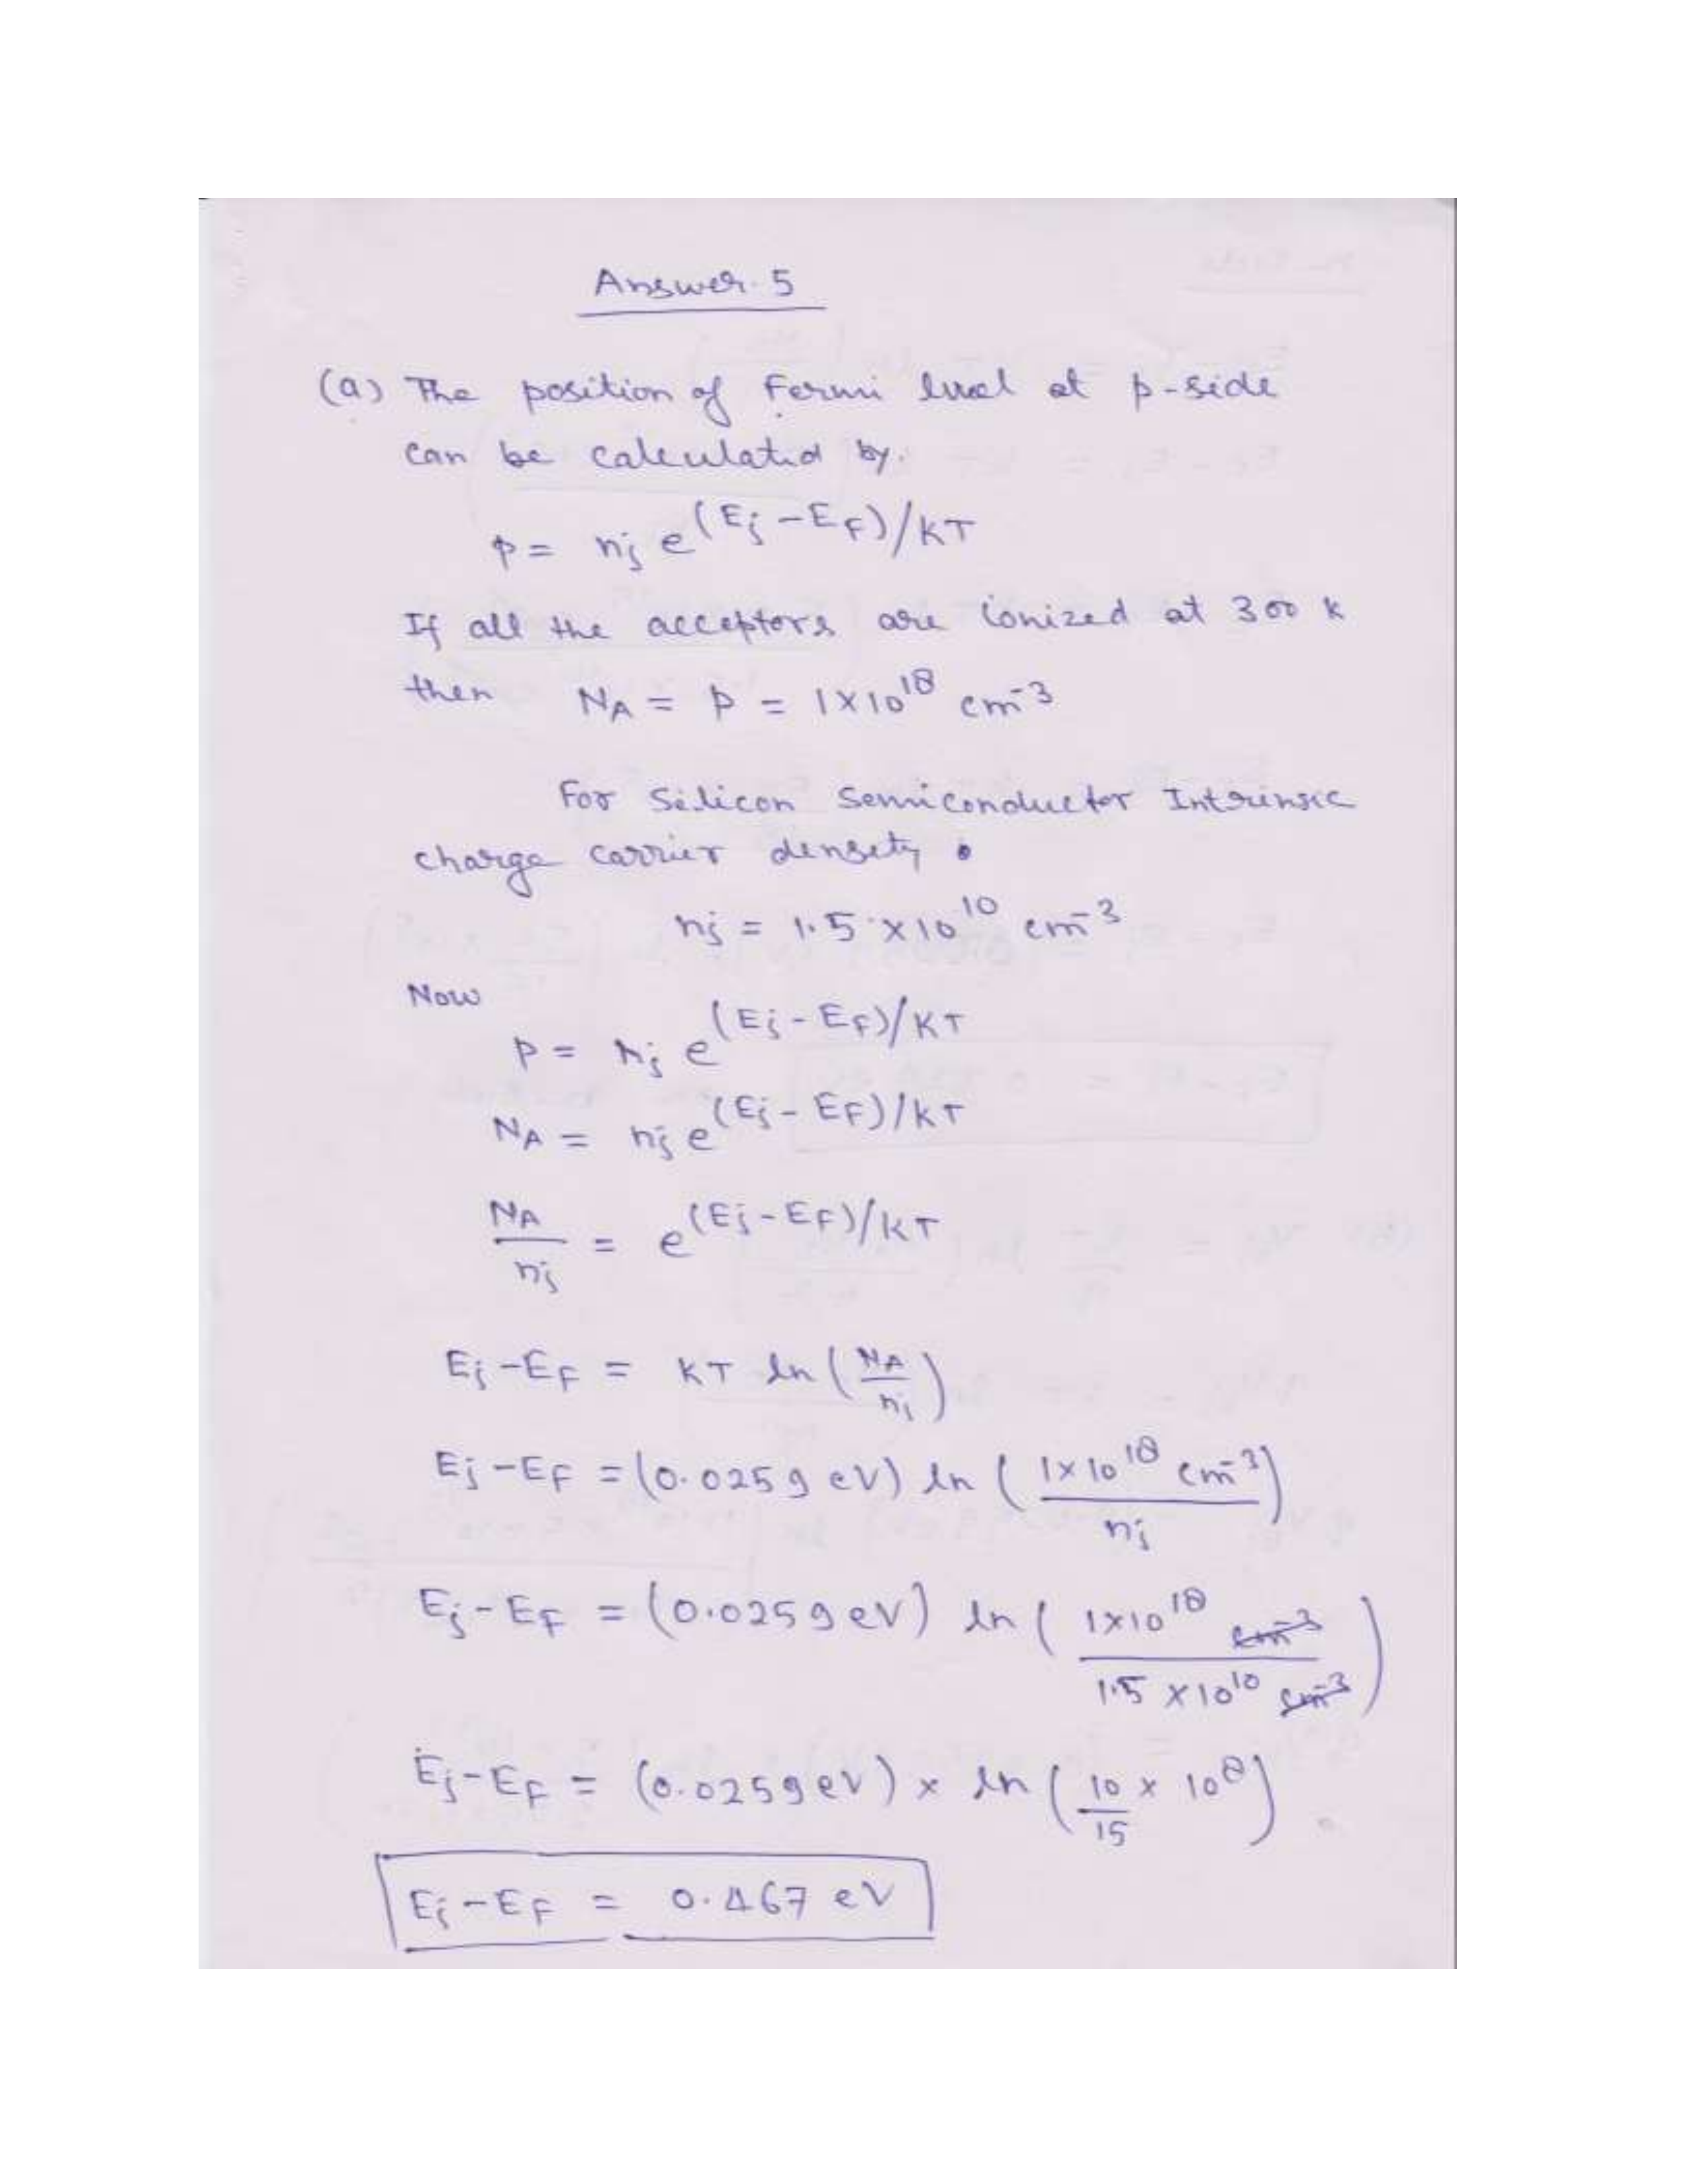 Answer-5
(a) The position of Fermi level at p-side
can be calculated by.
p = ni e^(Ei-EF)/KT
If all the acceptors are ionized at 300 k
then NA = p = 1×10^18 cm^-3
For Silicon Semiconductor Intrinsic
charge carrier density
ni = 1.5 × 10^10 cm^-3
Now
p = ni e^(Ei-EF)/KT
NA = ni e^(Ei-EF)/KT
NA/ni = e^(Ei-EF)/KT
Ei-EF = KT ln(NA/ni)
Ei-EF = (0.0259 eV) ln(1×10^18 cm^-3/ni)
Ei-EF = (0.0259 eV) ln(1×10^18 cm^-3/1.5 ×10^10 cm^-3)
Ei-EF = (0.0259 eV) × ln(10/15 × 10^8)
Ei-EF = 0.467 eV